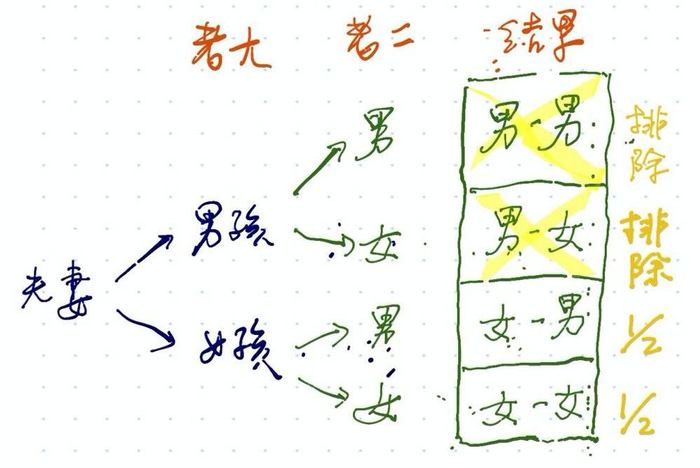 老大 老二 结果
男 男-男 排除
男孩 女 男-女 排除
夫妻
男 女-男 1/2
女孩
女 女-女 1/2